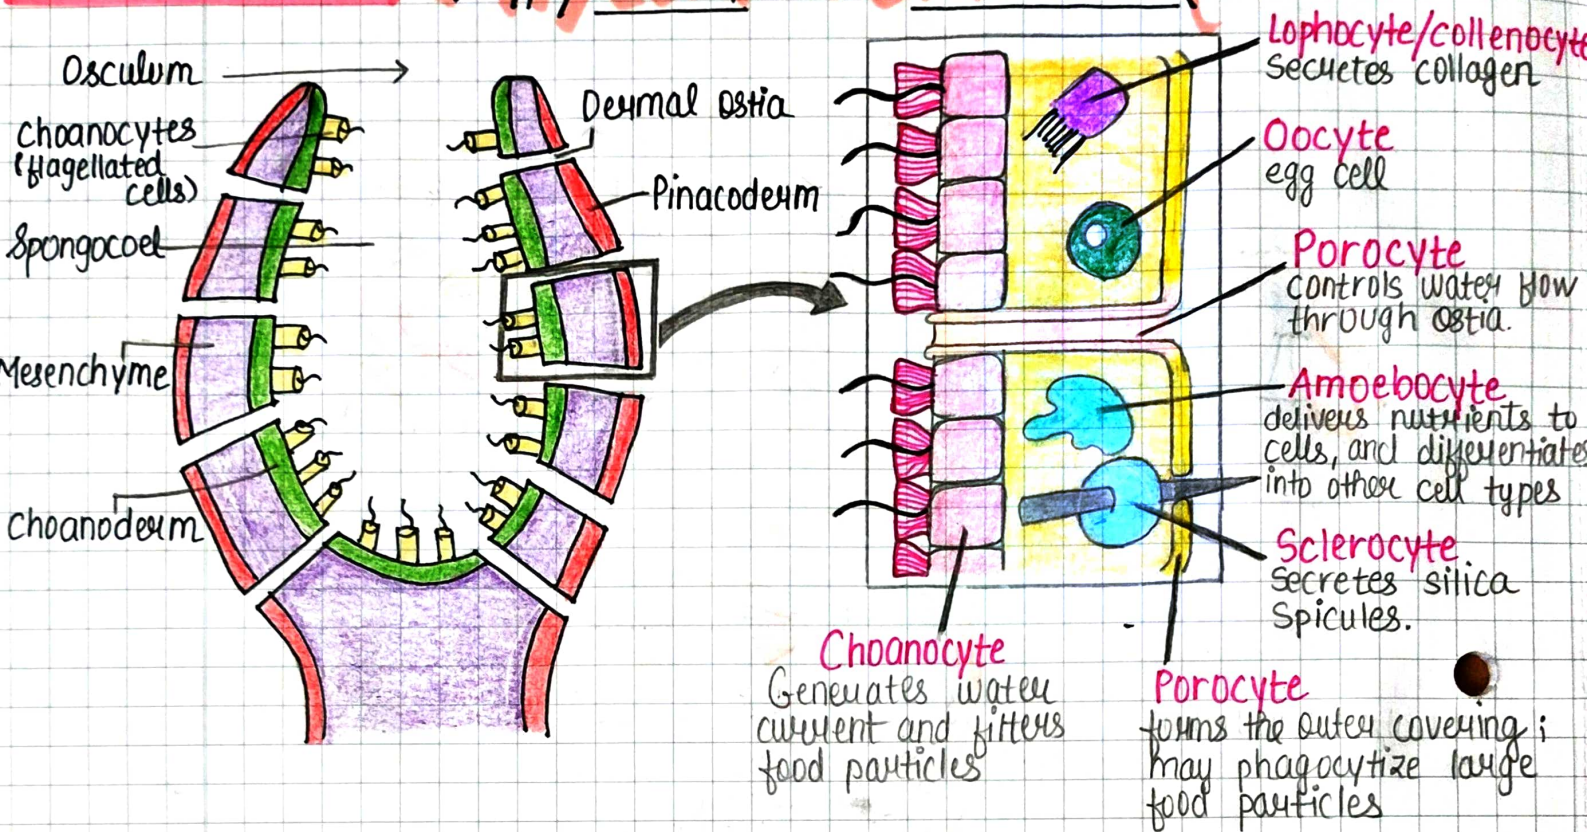 Osculum
Choanocytes
(flagellated
cells)
Spongocoel
Mesenchyme
Choanoderm
Dermal ostia
Pinacoderm
Lophocyte/collenocyte
Secretes collagen
Oocyte
egg cell
Porocyte
controls water flow
through ostia.
Amoebocyte
delivers nutrients to
cells, and differentiates
into other cell types
Sclerocyte
Secretes silica
Spicules.
Choanocyte
Generates water
current and filters
food particles
Porocyte
forms the outer covering ;
may phagocytize large
food particles